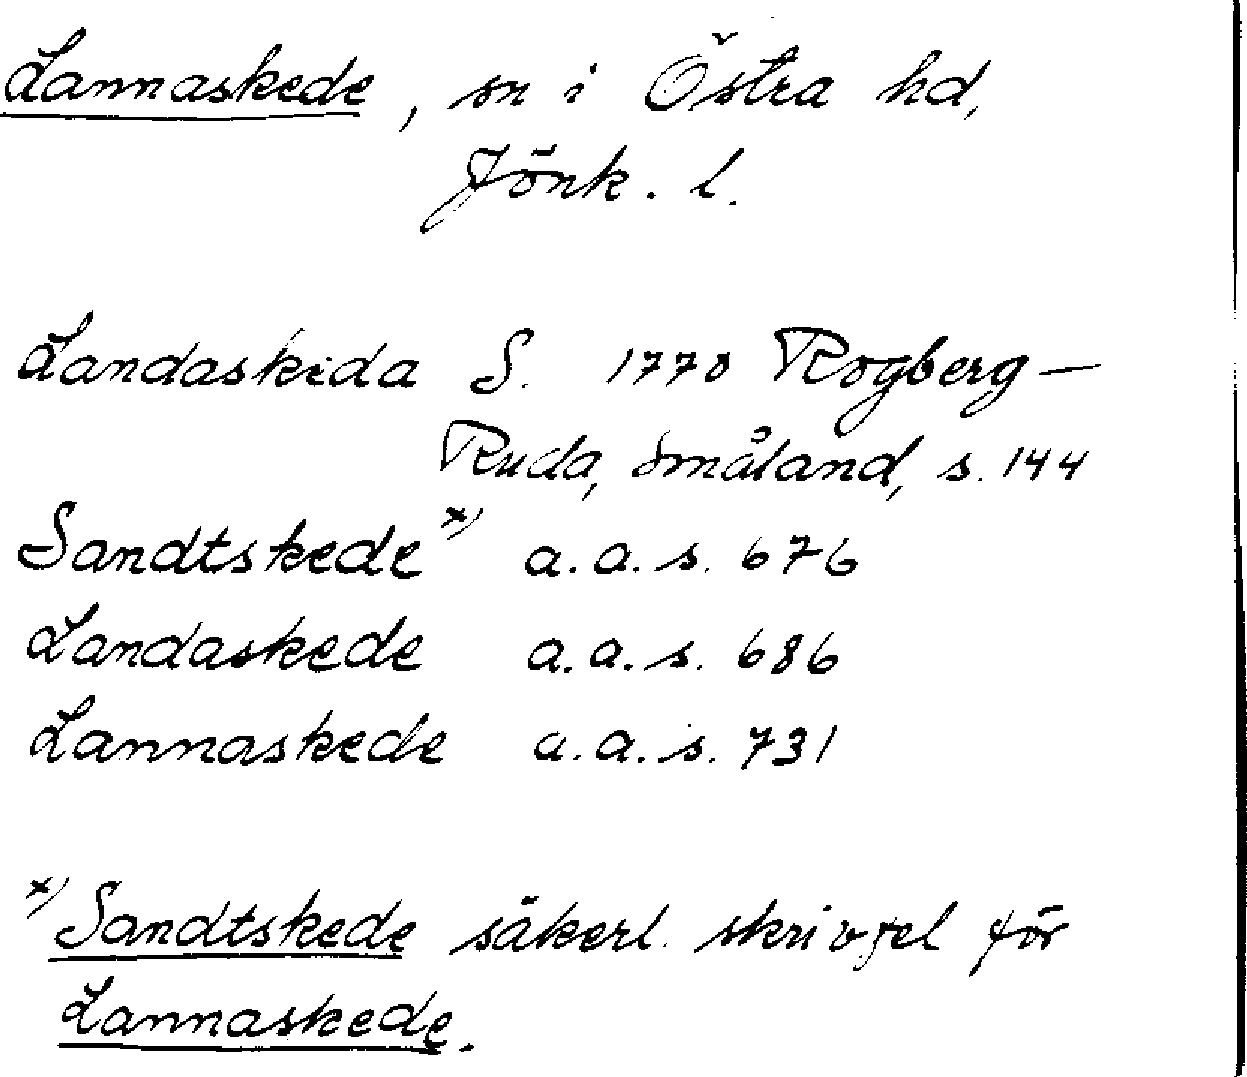 Lannaskede, sn i Östra hd,
Jönk. l.
Landaskeda S. 1770 Rogberg —
Ruda, Småland, s. 144
Sandtskede x) a.a.s. 676
Landaskede a.a.s. 686
Lannaskede a.a.s. 731
x) Sandtskede säkerl. skrivfel för
Lannaskede.